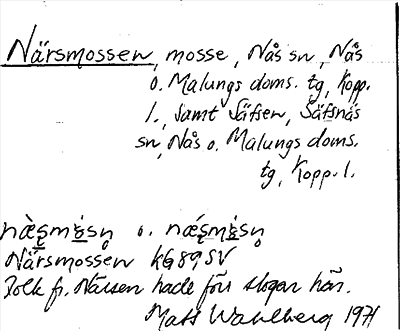 Närsmossen, mosse, Nås sn, Nås
o. Malungs doms. tg, Kopp.
l., samt Säfsen, Säfsnäs
sn, Nås o. Malungs doms.
tg, Kopp. l.
o.
Närsmossen KG89SV
Folk fr. Närsen hade förr slogar här.
Mats Wahlberg 1971